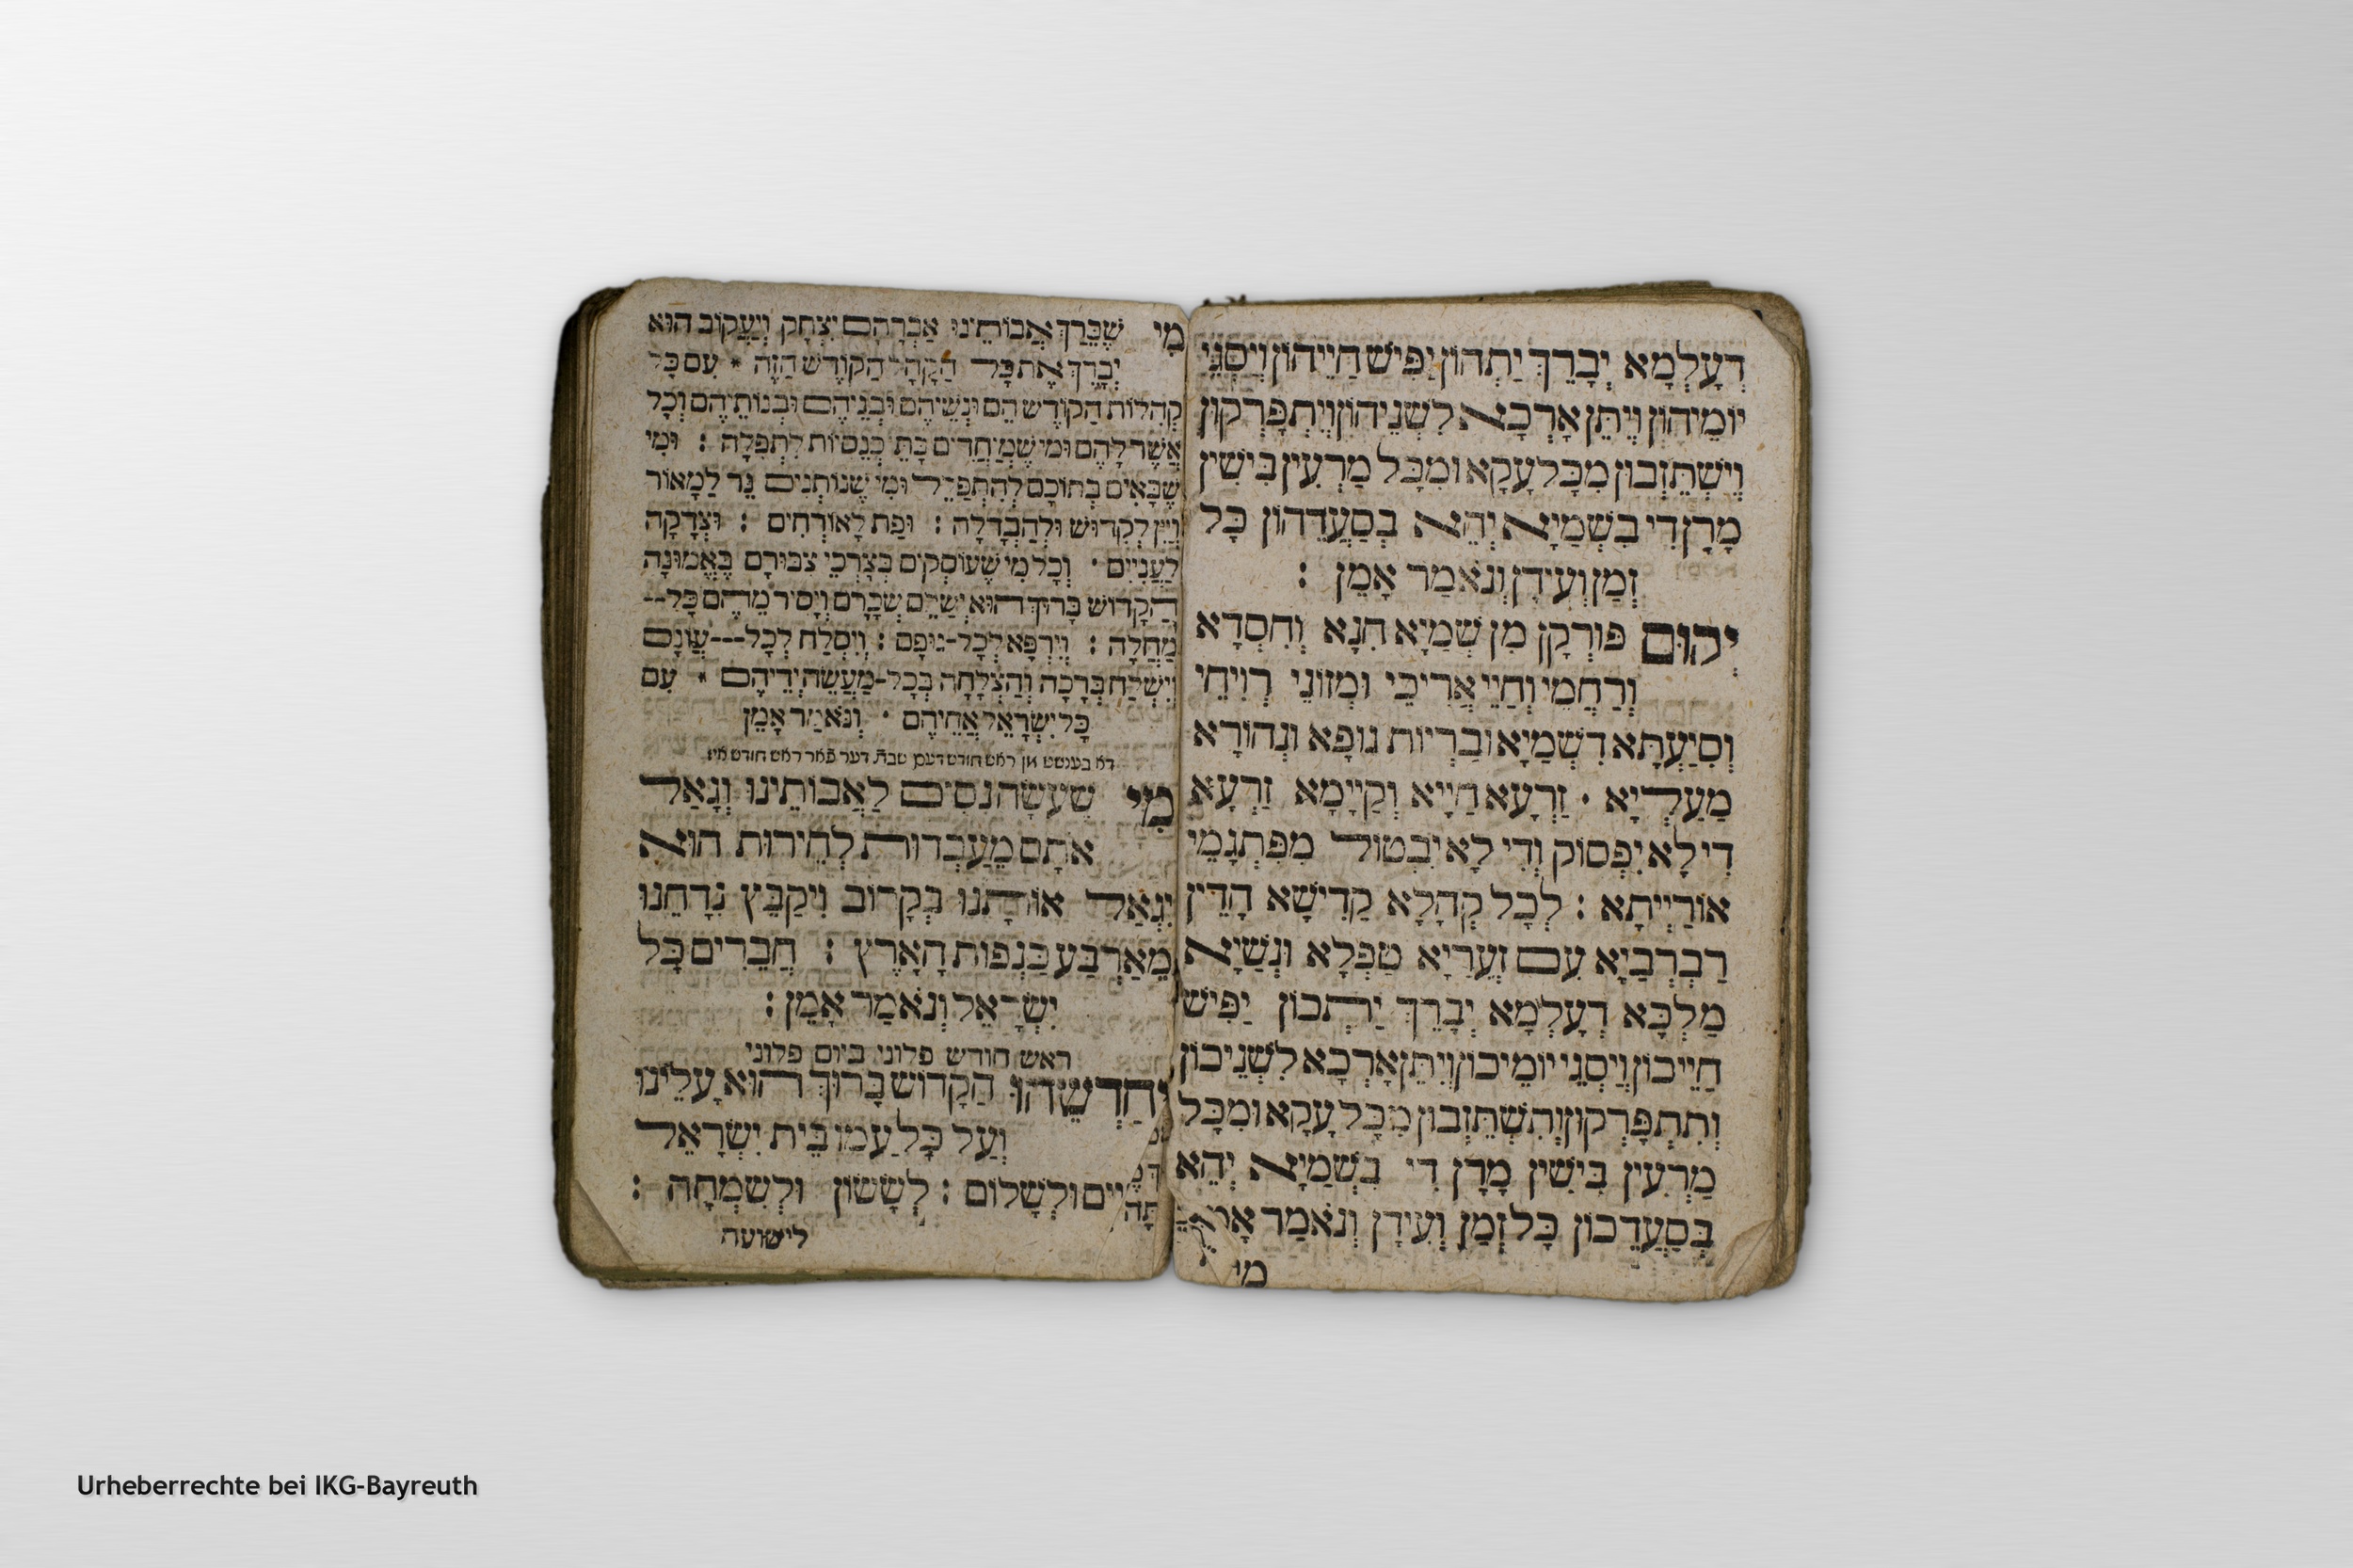 דְעָלְמָא יְבָרֵךְ יַתְהוֹן יַפִּישׁ חַיֵיהוֹן וְיַסְגֵי
יוֹמֵיהוֹן וְיִתֵּן אָרְכָא לִשְׁנֵיהוֹן וְיִתְפָּרְקוּן
וְיִשְׁתֵּזְבוּן מִכָּל עָקָא וּמִכָּל מַרְעִין בִּישִׁין
מָרָן דִי בִשְׁמַיָא יְהֵא בְּסַעֲדֵהוֹן כָּל
זְמַן וְעִידָן וְנֹאמַר אָמֵן :
יְקוּם פּוּרְקָן מִן שְׁמַיָא חִנָא וְחִסְדָא
וְרַחֲמֵי וְחַיֵי אֲרִיכֵי וּמְזוֹנֵי רְוִיחֵי
וְסִיַעְתָּא דִשְׁמַיָא וּבַרְיוּת גוּפָא וּנְהוֹרָא
מַעַלְיָא · זַרְעָא חַיָיא וְקַיָימָא זַרְעָא
דִי לָא יִפְסוֹק וְדִי לָא יִבְטוֹל מִפִּתְגָמֵי
אוֹרַיְיתָא : לְכָל קְהָלָא קַדִישָׁא הָדֵין
רַבְרְבַיָא עִם זְעֵרַיָא טַפְלָא וּנְשַׁיָא
מַלְכָּא דְעָלְמָא יְבָרֵךְ יַתְכוֹן יַפִּישׁ
חַיֵיכוֹן וְיַסְגֵי יוֹמֵיכוֹן וְיִתֵּן אָרְכָא לִשְׁנֵיכוֹן
וְתִתְפָּרְקוּן וְתִשְׁתֵּזְבוּן מִכָּל עָקָא וּמִכָּל
מַרְעִין בִּישִׁין מָרָן דִי בִשְׁמַיָא יְהֵא
בְּסַעֲדֵכוֹן כָּל זְמַן וְעִידָן וְנֹאמַר
מי
מִי שֶׁבֵּרַךְ אֲבוֹתֵינוּ אַבְרָהָם יִצְחָק וְיַעֲקוֹב הוּא
יְבָרֵךְ אֶת כָּל הַקָהָל הַקוֹדֶשׁ הַזֶה * עִם כָּל
קְהִלוֹת הַקוֹדֶשׁ הֵם וּנְשֵׁיהֶם וּבְנֵיהֶם וּבְנוֹתֵיהֶם וְכָל
אֲשֶׁר לָהֶם וּמִי שֶׁמְיַחֲדִים בָּתֵּי כְנֵסִיוֹת לִתְפִלָה : וּמִי
שֶׁבָּאִים בְּתוֹכָם לְהִתְפַּלֵל וּמִי שֶׁנוֹתְנִים נֵר לַמָאוֹר
וְיַיִן לְקִדוּשׁ וּלְהַבְדָלָה : וּפַת לָאוֹרְחִים : וּצְדָקָה
לַעֲנִיִים · וְכָל מִי שֶׁעוֹסְקִים בְּצָרְכֵי צִבּוּרָם בֶּאֱמוּנָה
הַקָדוֹשׁ בָּרוּךְ הוּא יְשַׁלֵם שְׂכָרָם וְיָסִיר מֵהֶם כָּל--
מַחֲלָה : וְיִרְפָּא לְכָל-גוּפָם : וְיִסְלַח לְכָל---עֲוֹנָם
וְיִשְׁלַח בְּרָכָה וְהַצְלָחָה בְּכָל-מַעֲשֵׂה יְדֵיהֶם * עִם
כָּל יִשְׂרָאֵל אֲחֵיהֶם · וְנֹאמַר אָמֵן
דא בענשט מן ראש חודש דעם שבת דער פאר ראש חודש איז
מִי שֶׁעָשָׂה נִסִים לַאֲבוֹתֵינוּ וְגָאַל
אֹתָם מֵעַבְדוּת לְחֵירוּת הוּא
יִגְאַל אוֹתָנוּ בְּקָרוֹב וִיקַבֵּץ נִדָחֵנוּ
מֵאַרְבַּע כַּנְפוֹת הָאָרֶץ : חֲבֵרִים כָּל
יִשְׂרָאֵל וְנֹאמַר אָמֵן :
ראש חודש פלוני ביום פלוני
יְחַדְשֵׁהוּ הַקָדוֹשׁ בָּרוּךְ הוּא עָלֵינוּ
וְעַל כָּל עַמוֹ בֵּית יִשְׂרָאֵל
וּלְשָׁלוֹם : לְשָׂשׂוֹן וּלְשִׂמְחָה :
לישועה
Urheberrechte bei IKG-Bayreuth